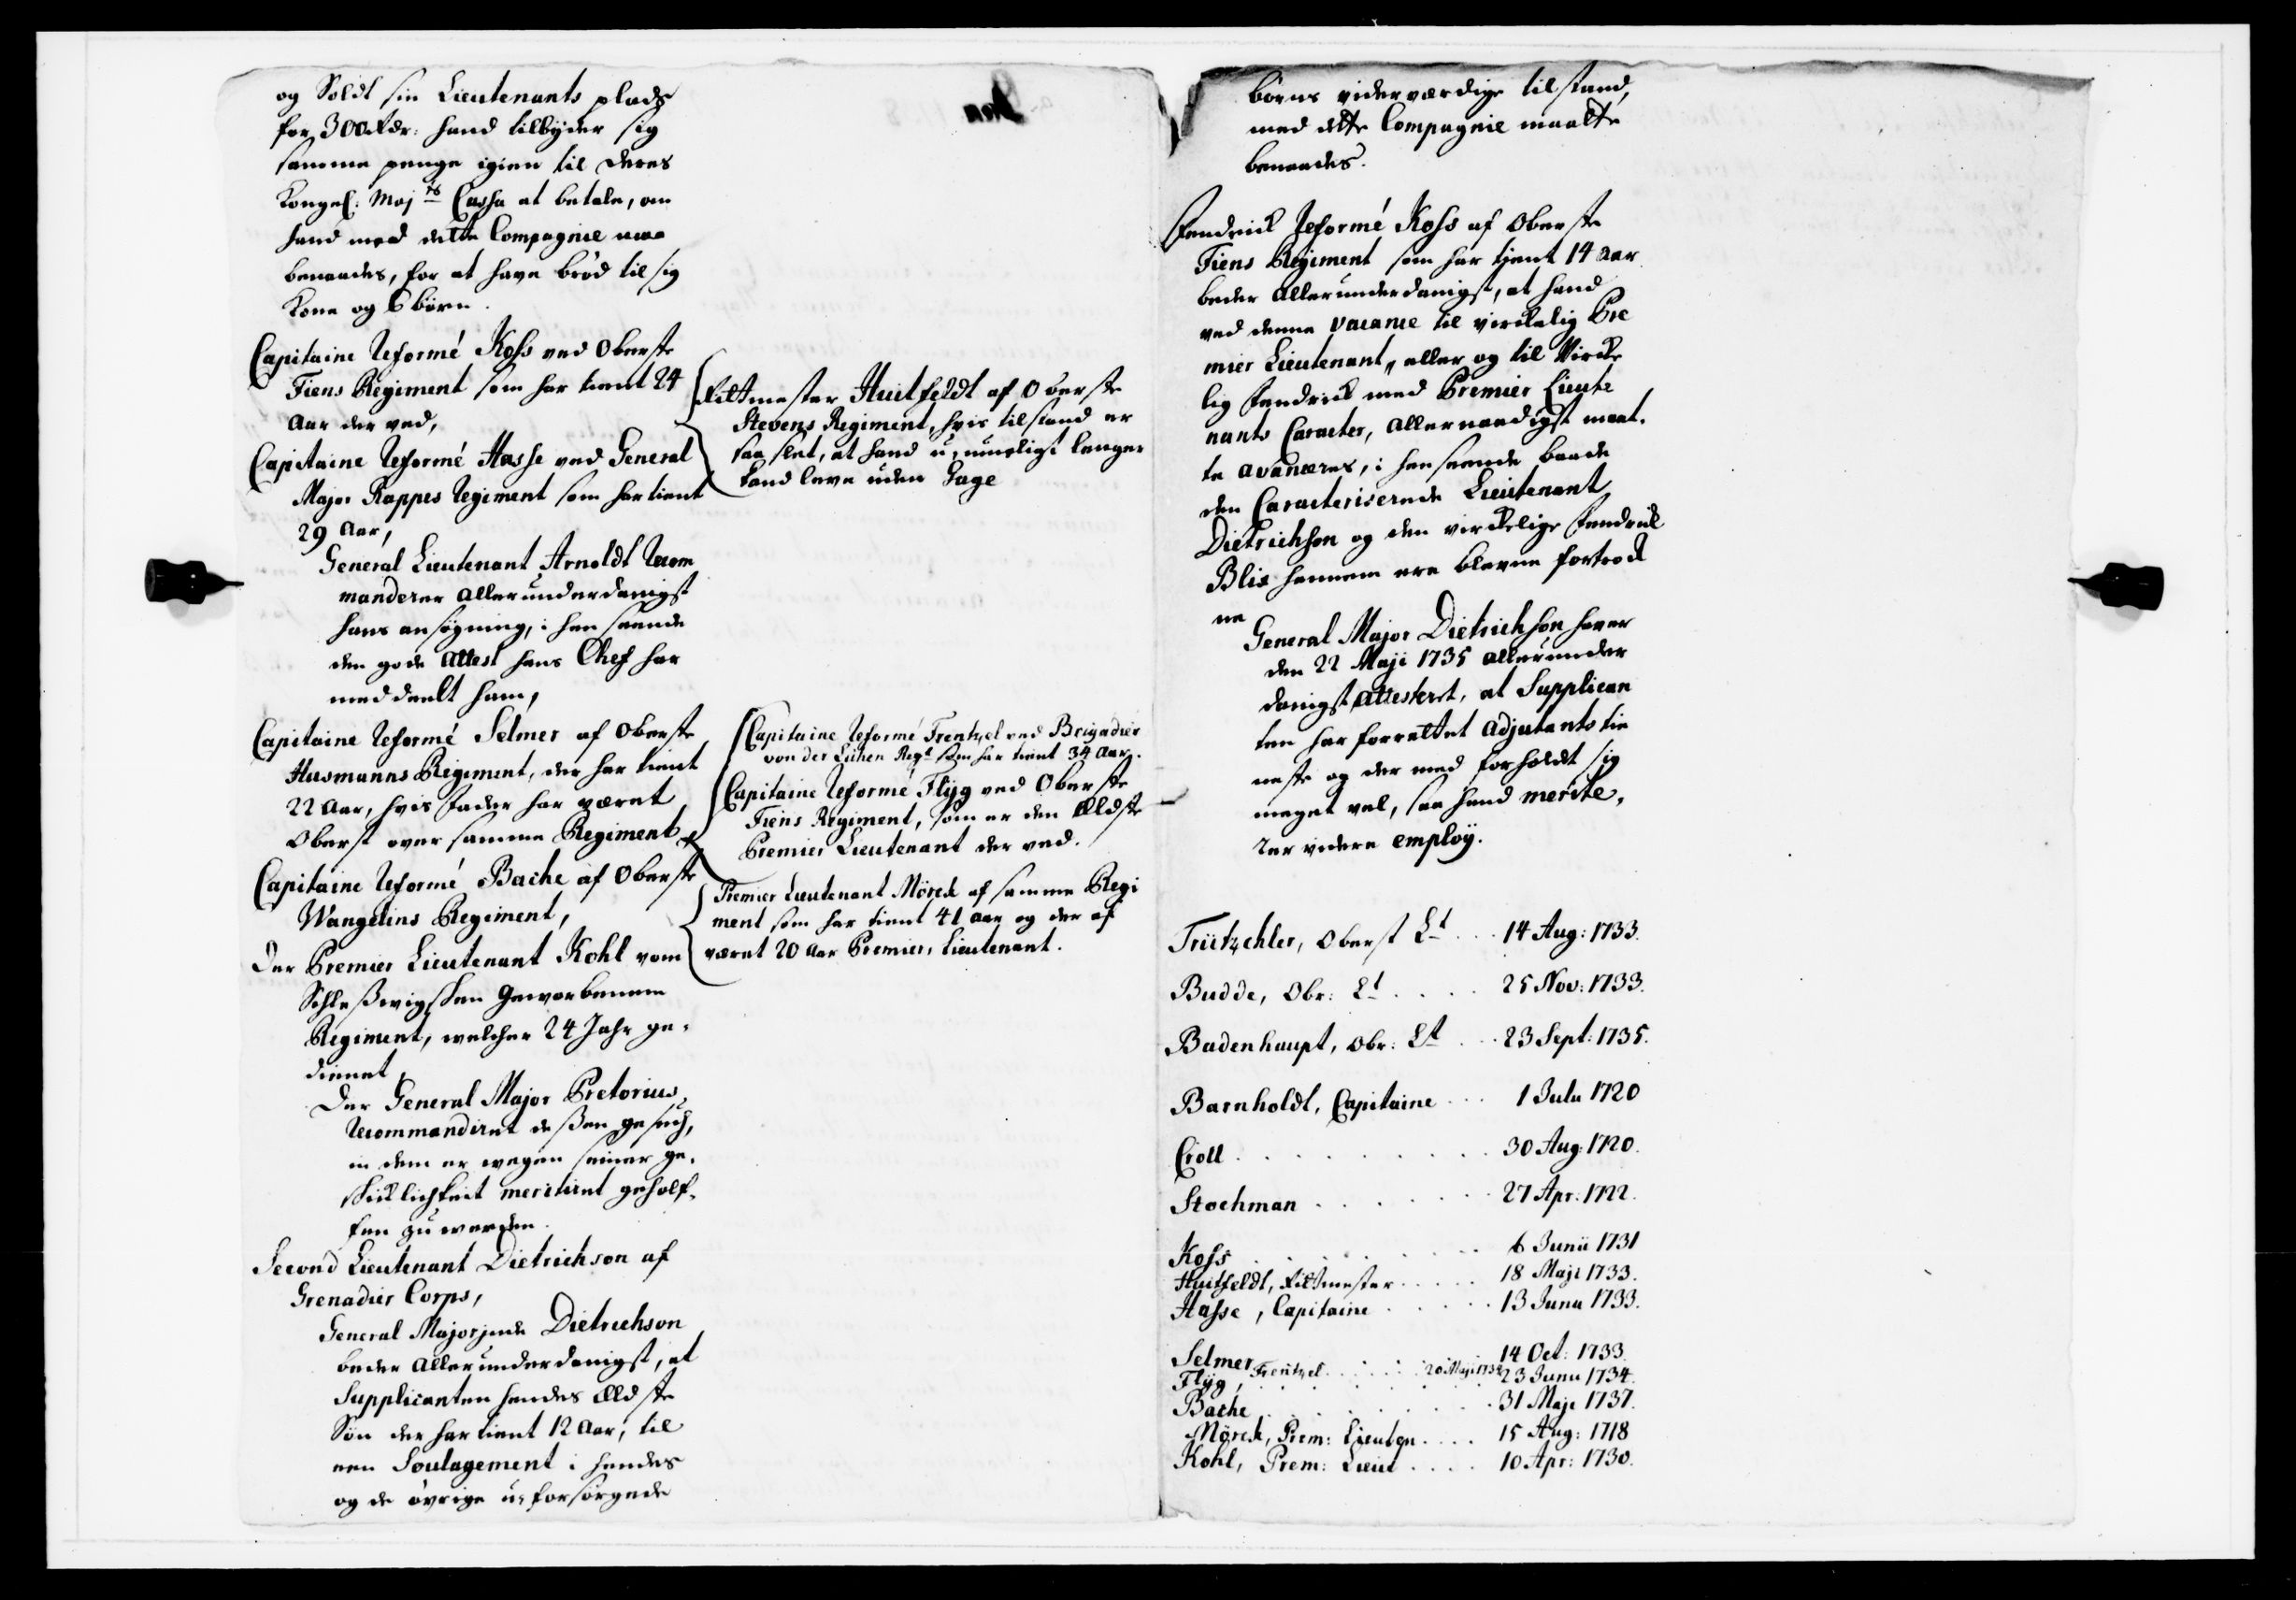 og Soldt sin Lieutenants plads
for 300 Rdr: hand tilbyder sig
samme penge igien til Deres
Kongel: Maj:ts Cassa at betale, om
hand med dette Compagnie maa
benaades, for at have bröd til sig
Kone og 6 börn.
Capitaine Reformé Koss ved Oberste
Fiens Regiment som har tient 24
Aar der ved,
Capitaine Reformé Hasse ved General
Major Rappes Regiment som har tient
29 Aar,
General Lieutenant Arnoldt Recom
manderer allerunderdanigst
hans ansögning, i henseende
den gode Attest hans Chef har
meddeelt ham,
Capitaine Reformé Selmer af Oberste
Husmanns Regiment, der har tient
22 Aar, hvis fader har været
Oberst over samme Regiment
Capitaine Reformé Bache af Oberste
Wangelins Regiment,
Der Premier Lieutenant Kohl vom
Schleßwigschen Geworbenem
Regiment, welcher 24 Jahr ge-
dienet,
Der General Major Pretorius,
Recommandiret deßen gesuch,
in dem er wegen seiner ge-
schicklichkeit meritiret geholf-
fen zu werden.
Second Lieutenant Dietrichson af
Grenadier Corps,
General Majorinde Dietrichson
beder allerunderdanigst, at
Supplicanten hendes Eldste
Sön der har tient 12 Aar, til
een Soulagement i hendes
og de övrige u-forsörgede
Rittmester Huitfeldt af Oberste
Stevens Regiment, hvis tilstand er
saa slet, at hand u-mueligt lenger
kand leve uden Gage
Capitaine Reformé Frentzel ved Brigadier
von der Lühen Regt som har tient 34 Aar.
Capitaine Reformé Flÿg ved Oberste
Fiens Regiment, som er den Eldste
Premier Lieutenant der ved.
Premier Lieutenant Mörch af samme Regi
ment som har tient 41 aar og der af
været 20 Aar Premier Lieutenant.
börns viederværdige tilstand,
med dette Compagnie maatte
benaades.
Fendrich Reformé Koss af Oberste
Fiens Regiment som har tient 14 Aar
beder allerunderdanigst, at hand
ved denne Vacance til virckelig Pre
mier Lieutenant, eller og til Wircke
lig Fendrich med Premier Lieute
nants Caracter, allernaadigst maat-
te avanceres, i henseende baade
den Caracteriserede Lieutenant
Dietrichson og den virckelige Fendrich
Blix hannem ere blevne fortrock
ne
General Major Dietrichson haver
den 22 Maji 1735 allerunder
danigst attesteret, at Supplican
ten har forrettet Adjutants tie
neste og der med forholdt sig
meget vel, saa hand merite-
rer videre employ.
Trützchler, Oberst Lt . . 14 Aug: 1733.
Budde, Obr: Lt . . . . 25 Nov: 1733.
Badenhaupt, Obr: Lt . . 23 Sept: 1735.
Barnholdt, Capitaine . . . 1 Julii 1720
Croll . . . . . . . . 30 Aug: 1720.
Stochman . . . . . . 27 Apr: 1722.
Koss . . . . . . . . 6 Junii 1731
Huitfeldt, Rittmester . . . . . 18 Maji 1733.
Hasse, Capitaine . . . . . 13 Junii 1733.
Selmer . . . . . . . 14 Oct: 1733.
Frentzel . . . . . . 20 Maji 1734
Flÿg, . . . . . . . 23 Junii 1734.
Bache . . . . . . . . 31 Maji 1737.
Mörch, Prem: Lieuten . . . . 15 Aug: 1718
Kohl, Prem: Lieut . . . . 10 Apr: 1730.